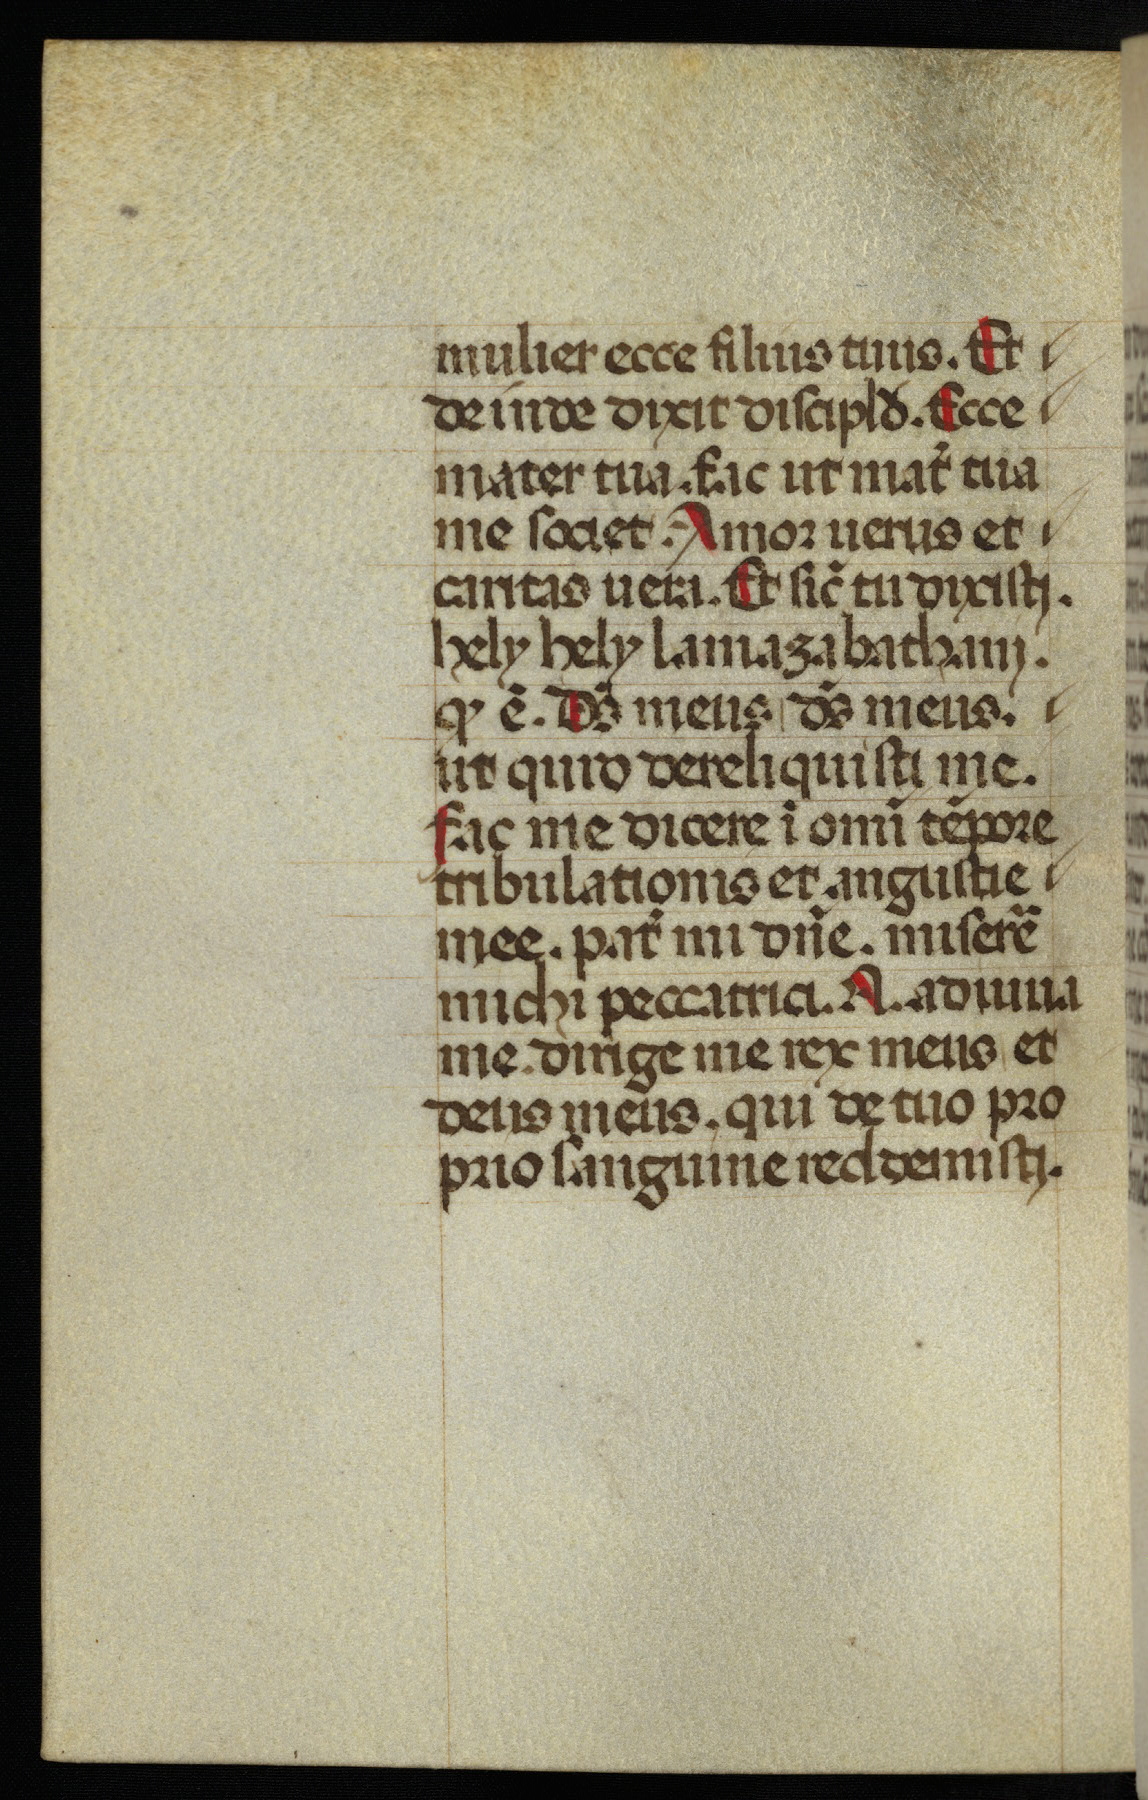 mulier ecce filius tuus. Et
deinde dixit discipl̄o. Ecce
mater tua. fac ut mat̄ tua
me societ. Amor uerus et
caritas uera. Et sic̄ tu dixisti.
hely hely lamazabathani.
qͥ ē. Ds̄ meus ds̄ meus.
ut quid dereliquisti me.
fac me dicere ī omī tēpore
tribulationis et angustie
mee. pat̄ mi dn̄e. miserē
michi peccatrici. A. adiuua
me. dirige me rex meus et
deus meus. qui de tuo pro
prio sanguine reddemisti.